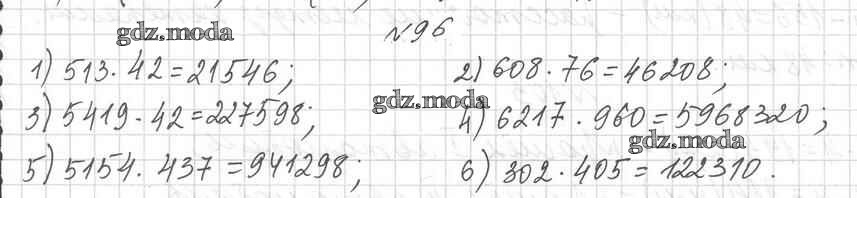 gdz.moda
№96
1) 513·42=21546;
2) 608·76=46208;
gdz.moda
3) 5419·42=227598;
4) 6217·960=5968320;
gdz.moda
5) 5154·437=941298;
6) 302·405=122310.